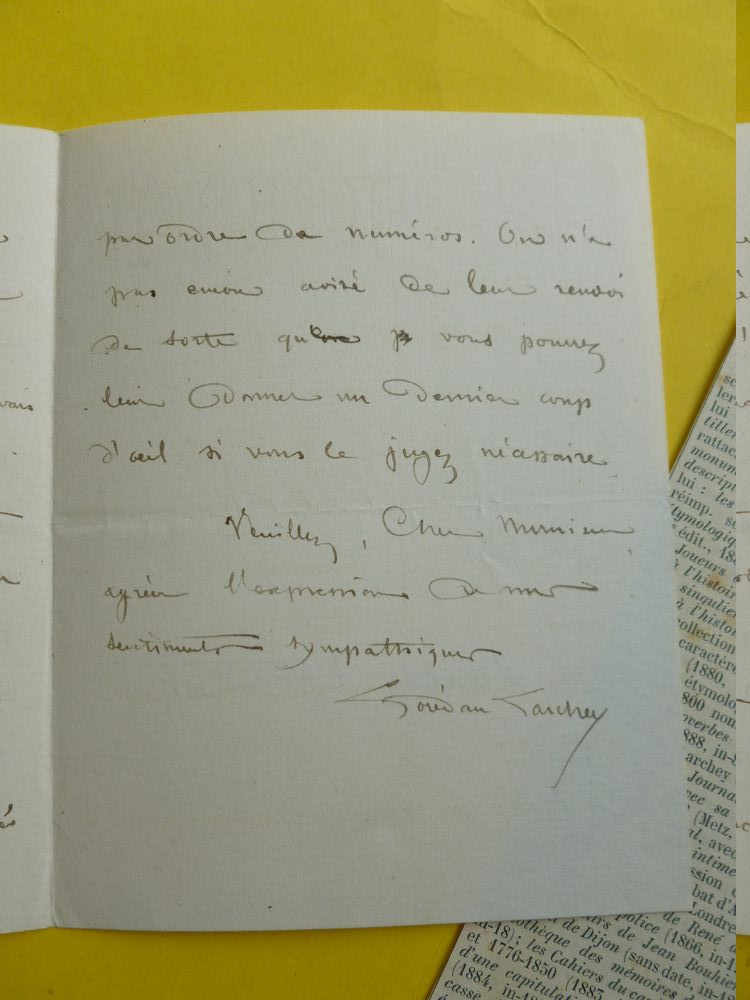 par ordre de numéros. On n'a
pas encore avisé de leur renvoi
de sorte que vous pourrez
leur donner un dernier coup
d'œil si vous le jugez nécessaire
Veuillez, Cher Monsieur,
agréer l'expression de mes
sentiments sympathiques
Lorédan Larchey
vais
lui
tiller
rattac
monum
descript
lui : les
réimp. sc
tymologiq
édit., 18
Joueurs
à l'histoir
singulier
à l'histo
collection
caractère
(1880,
étymolo
800 nom
overbes
888, in-8
archey
Journa
vec sa
(Metz,
avec
intime
ssion
bat d'A
Londre
de René
police (1866, in-1
de Jean Bouhier
t de Dijon (sans date, in-4
in-18) ; les Cahiers du ca
othèque des mémoires
et 1776-1850 (1885
d'une capitulai
(1884, in-4
casse